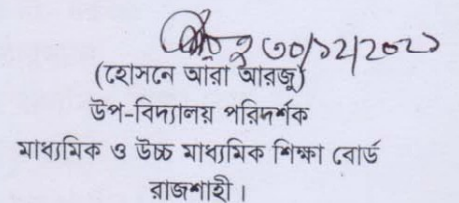 ৩০/১২/২০২১
(হোসনে আঁরা আরজু)
উপ-বিদ্যালয় পরিদর্শক
মাধ্যমিক ও উচ্চ মাধ্যমিক শিক্ষা বোর্ড
রাজশাহী।